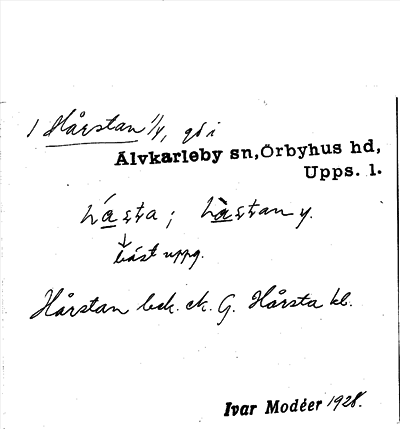 1 Hårstan 1/4, gd i
Älvkarleby sn, Örbyhus hd,
Upps. l.
hásta; hàstan y.
↓
bäst uppg.
Hårstan bek. ek. G. Hårsta kl.
Ivar Modéer 1928.